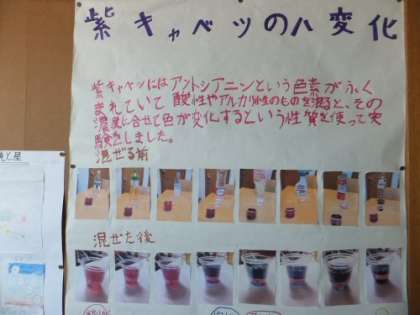 紫キャベツの八変化
紫キャベツにはアントシアニンという色素がふく
まれていて酸性やアルカリ性のものを混ぜると、その
濃度に合せて色が変化するという性質を使って実
験をしました。
混ぜる前
混ぜた後